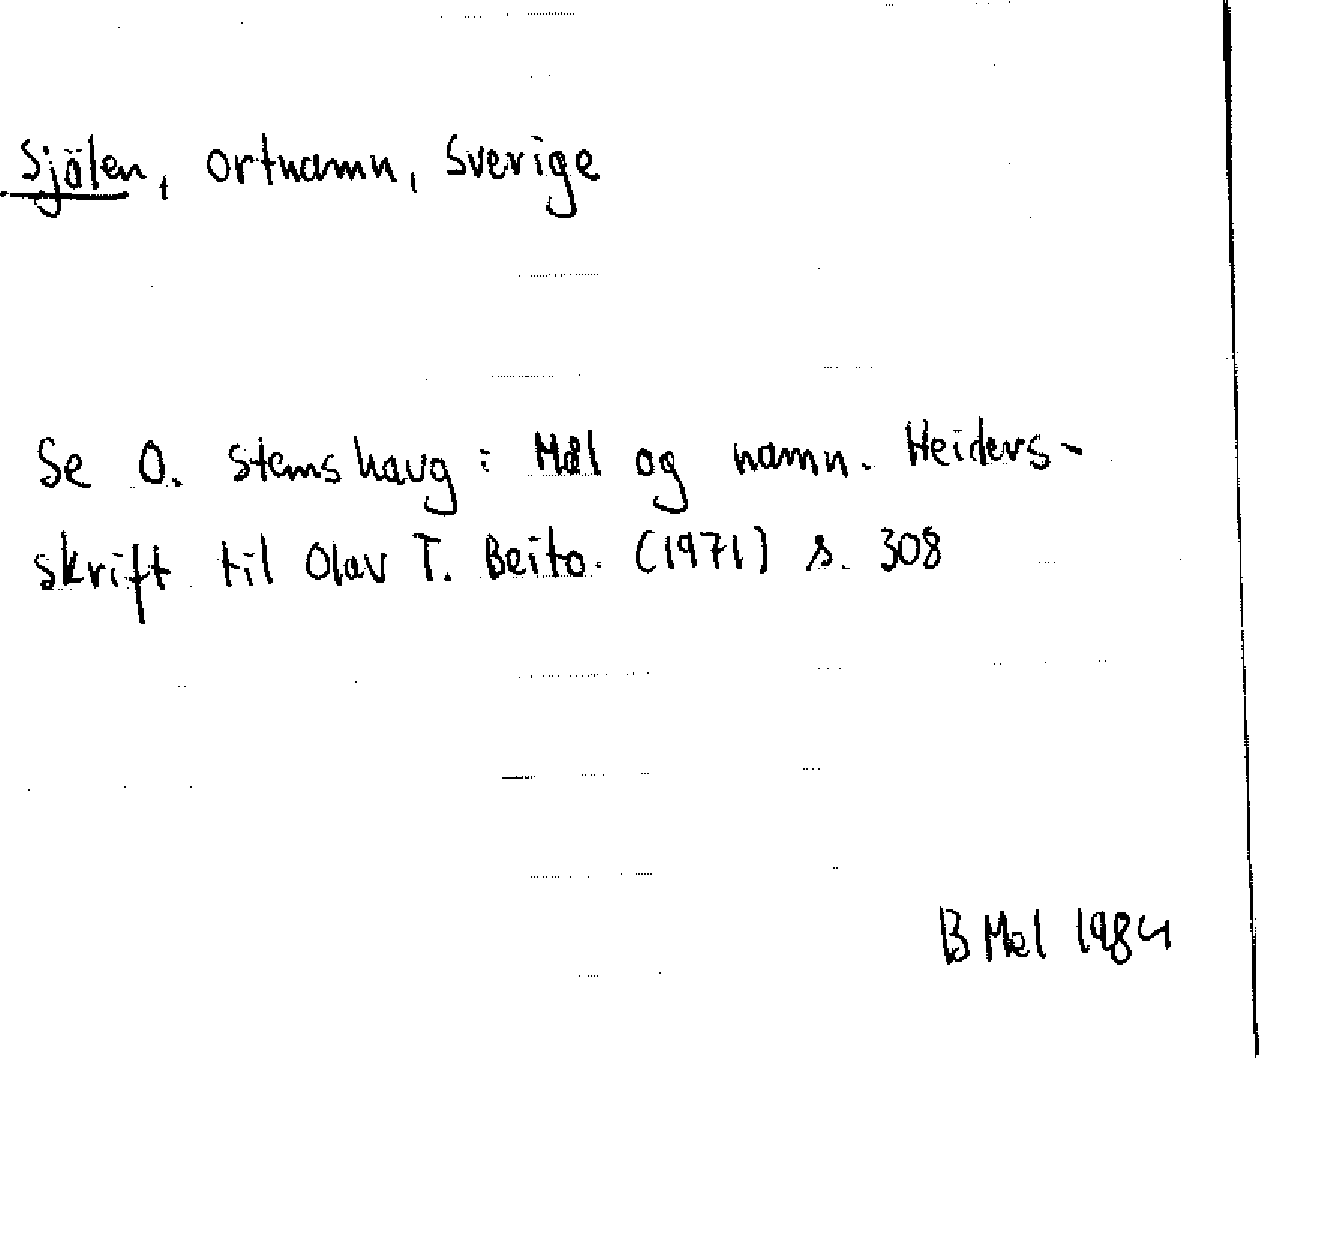 Sjölen, ortnamn, Sverige
Se O. Stemshaug: Mål og namn. Heiders-
skrift til Olav T. Beito. (1971) s. 308
B Mel 1984